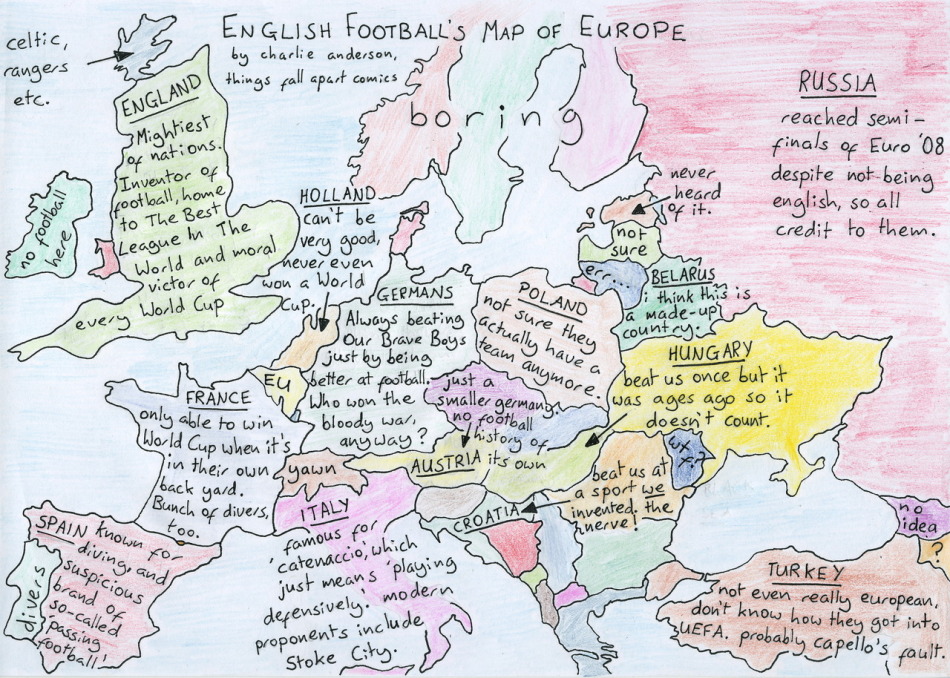 ENGLISH FOOTBALL'S MAP OF EUROPE
by charlie anderson,
things fall apart comics
celtic,
rangers
etc.
ENGLAND
Mightiest
of nations.
Inventor of
football, home
to The Best
League In The
World and moral
victor of
every World Cup
no football
here
boring
RUSSIA
reached semi-
finals of Euro '08
despite not being
english, so all
credit to them.
never
heard
of it.
not
sure
err...
BELARUS
i think this is
a made-up
country.
HOLLAND
can't be
very good,
never even
won a World
Cup.
GERMANS
Always beating
Our Brave Boys
just by being
better at football.
Who won the
bloody war,
anyway?
POLAND
not sure they
actually have a
team anymore.
HUNGARY
beat us once but it
was ages ago so it
doesn't count.
EU
just a
smaller germany.
no football
history of
its own
AUSTRIA
FRANCE
only able to win
World Cup when it's
in their own
back yard.
Bunch of divers,
too.
yawn
wtf?
beat us at
a sport we
invented. the
nerve!
CROATIA
SPAIN known for
diving, and
suspicious
brand of
so-called
'passing
football'
divers
ITALY
famous for
'catenaccio,' which
just means 'playing
defensively.' modern
proponents include
Stoke City.
no
idea
?
TURKEY
not even really european,
don't know how they got into
UEFA. probably capello's fault.